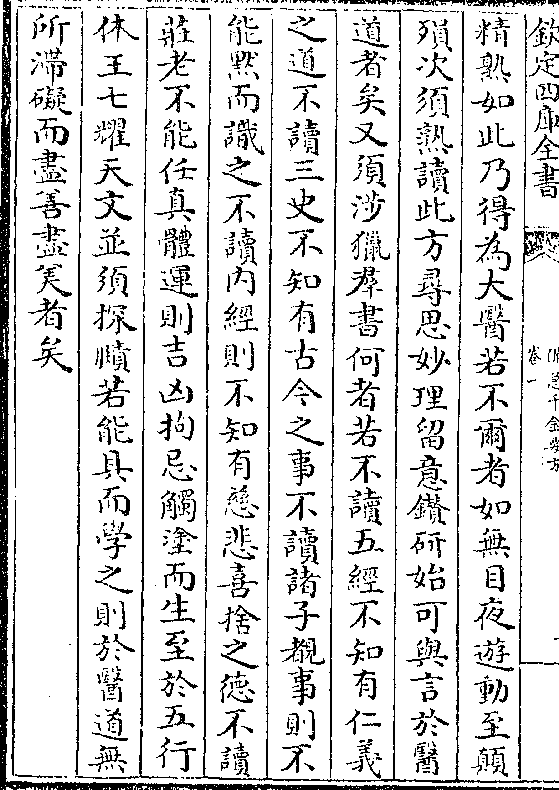 欽定四庫全書
卷一
精熟如此乃得為大醫若不爾者如無目夜遊動至顛
殞次須熟讀此方尋思妙理留意鑽研始可與言於醫
道者矣又須涉獵羣書何者若不讀五經不知有仁義
之道不讀三史不知有古今之事不讀諸子覩事則不
能黙而識之不讀内經則不知有慈悲喜捨之德不讀
莊老不能任真體運則吉凶拘忌觸塗而生至於五行
休王七耀天文並須探賾若能具而學之則於醫道無
所滯礙而盡善盡美者矣